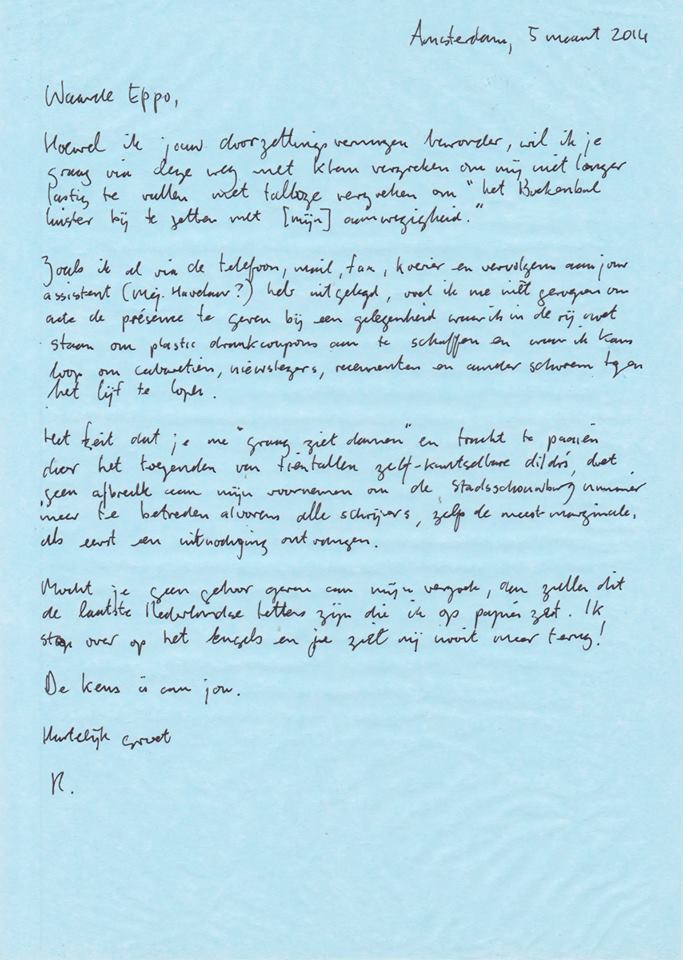 Amsterdam, 5 maart 2014
Waarde Eppo,
Hoewel ik jouw doorzettingsvermogen bewonder, wil ik je
graag via deze weg met klem verzoeken om mij niet langer
lastig te vallen met talloze verzoeken om "het Boekenbal
luister bij te zetten met [mijn] aanwezigheid."
Zoals ik al via de telefoon, mail, fax, koerier en vervolgens aan jouw
assistent (Mej. Havelaar?) heb uitgelegd, voel ik me niet geroepen om
acte de présence te geven bij een gelegenheid waar ik in de rij moet
staan om plastic drankcoupons aan te schaffen en waar ik kans
loop om cabaretiers, nieuwslezers, recensenten en ander schorem tegen
het lijf te lopen.
Het feit dat je me "graag ziet dansen" en tracht te paaien
door het toezenden van tientallen zelf-knutselbare dildo's, doet
geen afbreuk aan mijn voornemen om de Stadsschouwburg nimmer
meer te betreden alvorens alle schrijvers, zelfs de meest marginale,
als eerst een uitnodiging ontvangen.
Mocht je geen gehoor geven aan mijn verzoek, dan zullen dit
de laatste Nederlandse letters zijn die ik op papier zet. Ik
stap over op het Engels en je ziet mij nooit meer terug!
De keus is aan jou.
Hartelijk groet
R.